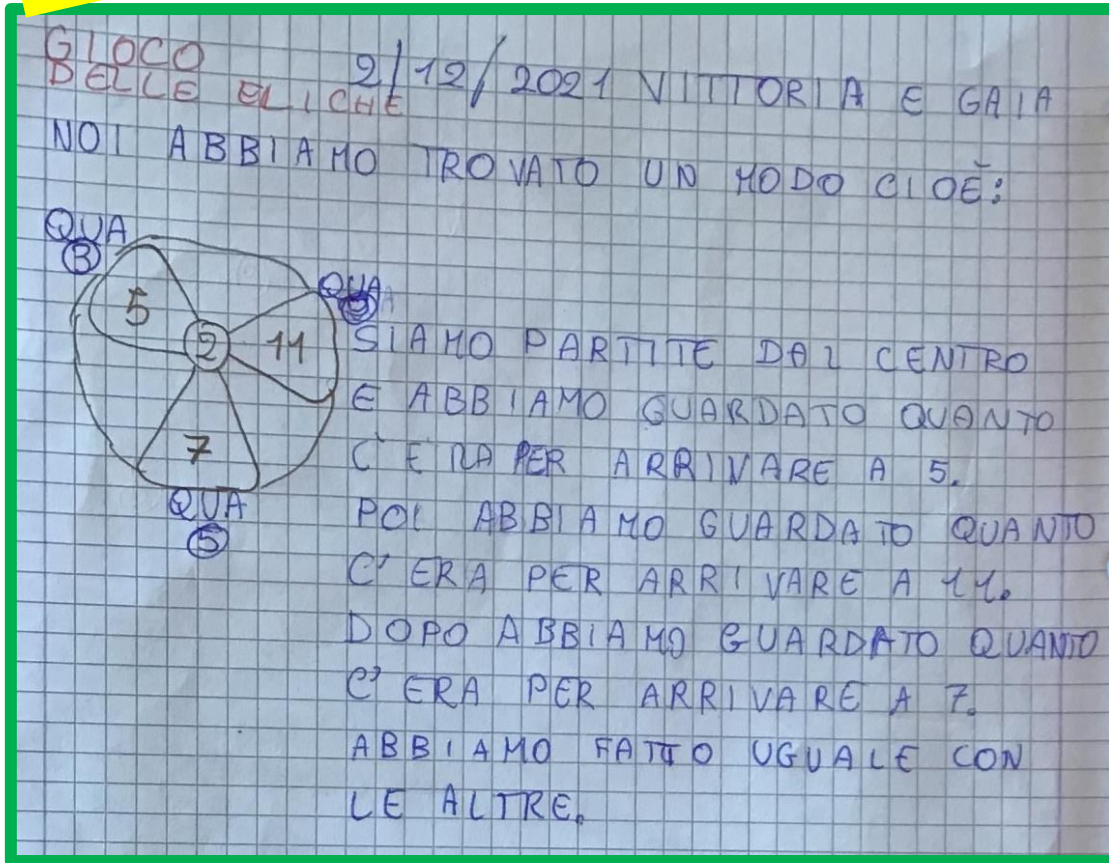 GIOCO
DELLE ELICHE
2/12/2021 VITTORIA E GAIA
NOI ABBIAMO TROVATO UN MODO CIOÈ:
QUA
3
QUA
5
2
11
SIAMO PARTITE DAL CENTRO
E ABBIAMO GUARDATO QUANTO
7
C'ERA PER ARRIVARE A 5.
QUA
5
POI ABBIAMO GUARDATO QUANTO
C'ERA PER ARRIVARE A 11.
DOPO ABBIAMO GUARDATO QUANTO
C'ERA PER ARRIVARE A 7.
ABBIAMO FATTO UGUALE CON
LE ALTRE.